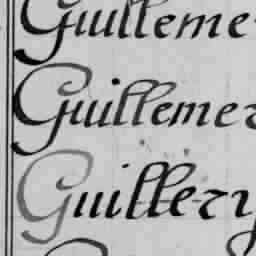 Guilleme
Guillemer
Guillery